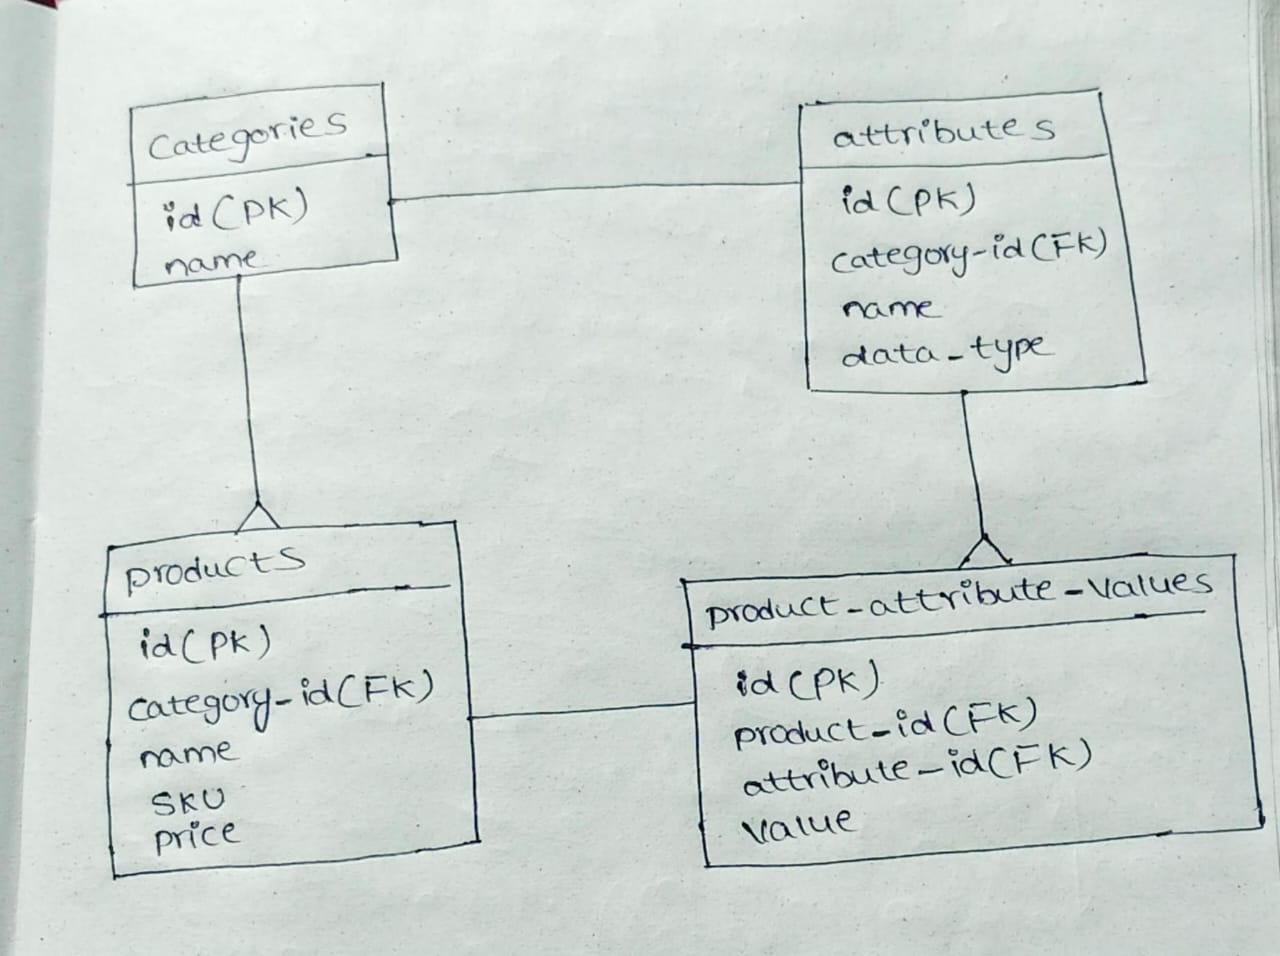 Categories
id (PK)
name
attributes
id (PK)
category-id (FK)
name
data-type
products
id (PK)
category-id (FK)
name
SKU
price
product-attribute-values
id (PK)
product-id (FK)
attribute-id (FK)
value